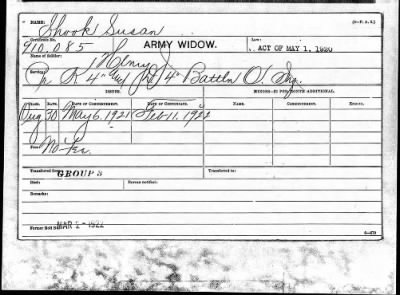 NAME:
Shook Susan
Certificate No.
910,085
ARMY WIDOW.
Law:
ACT OF MAY 1, 1920
Name of Soldier:
Henry J
Service:
Co K 4" & 4" Battln O. Inf.
ISSUE.
MINORS—$2 PER MONTH ADDITIONAL.
CLASS. RATE. DATE OF COMMENCEMENT. DATE OF CERTIFICATE. NAME. COMMENCEMENT.
Aug 30 May 6, 1921 Feb 11, 1922
Fees:
No Fee
Transferred from GROUP 3
Transferred to:
Died:
Bureau notified:
Remarks:
Former Roll No. MAR 2 - 1922